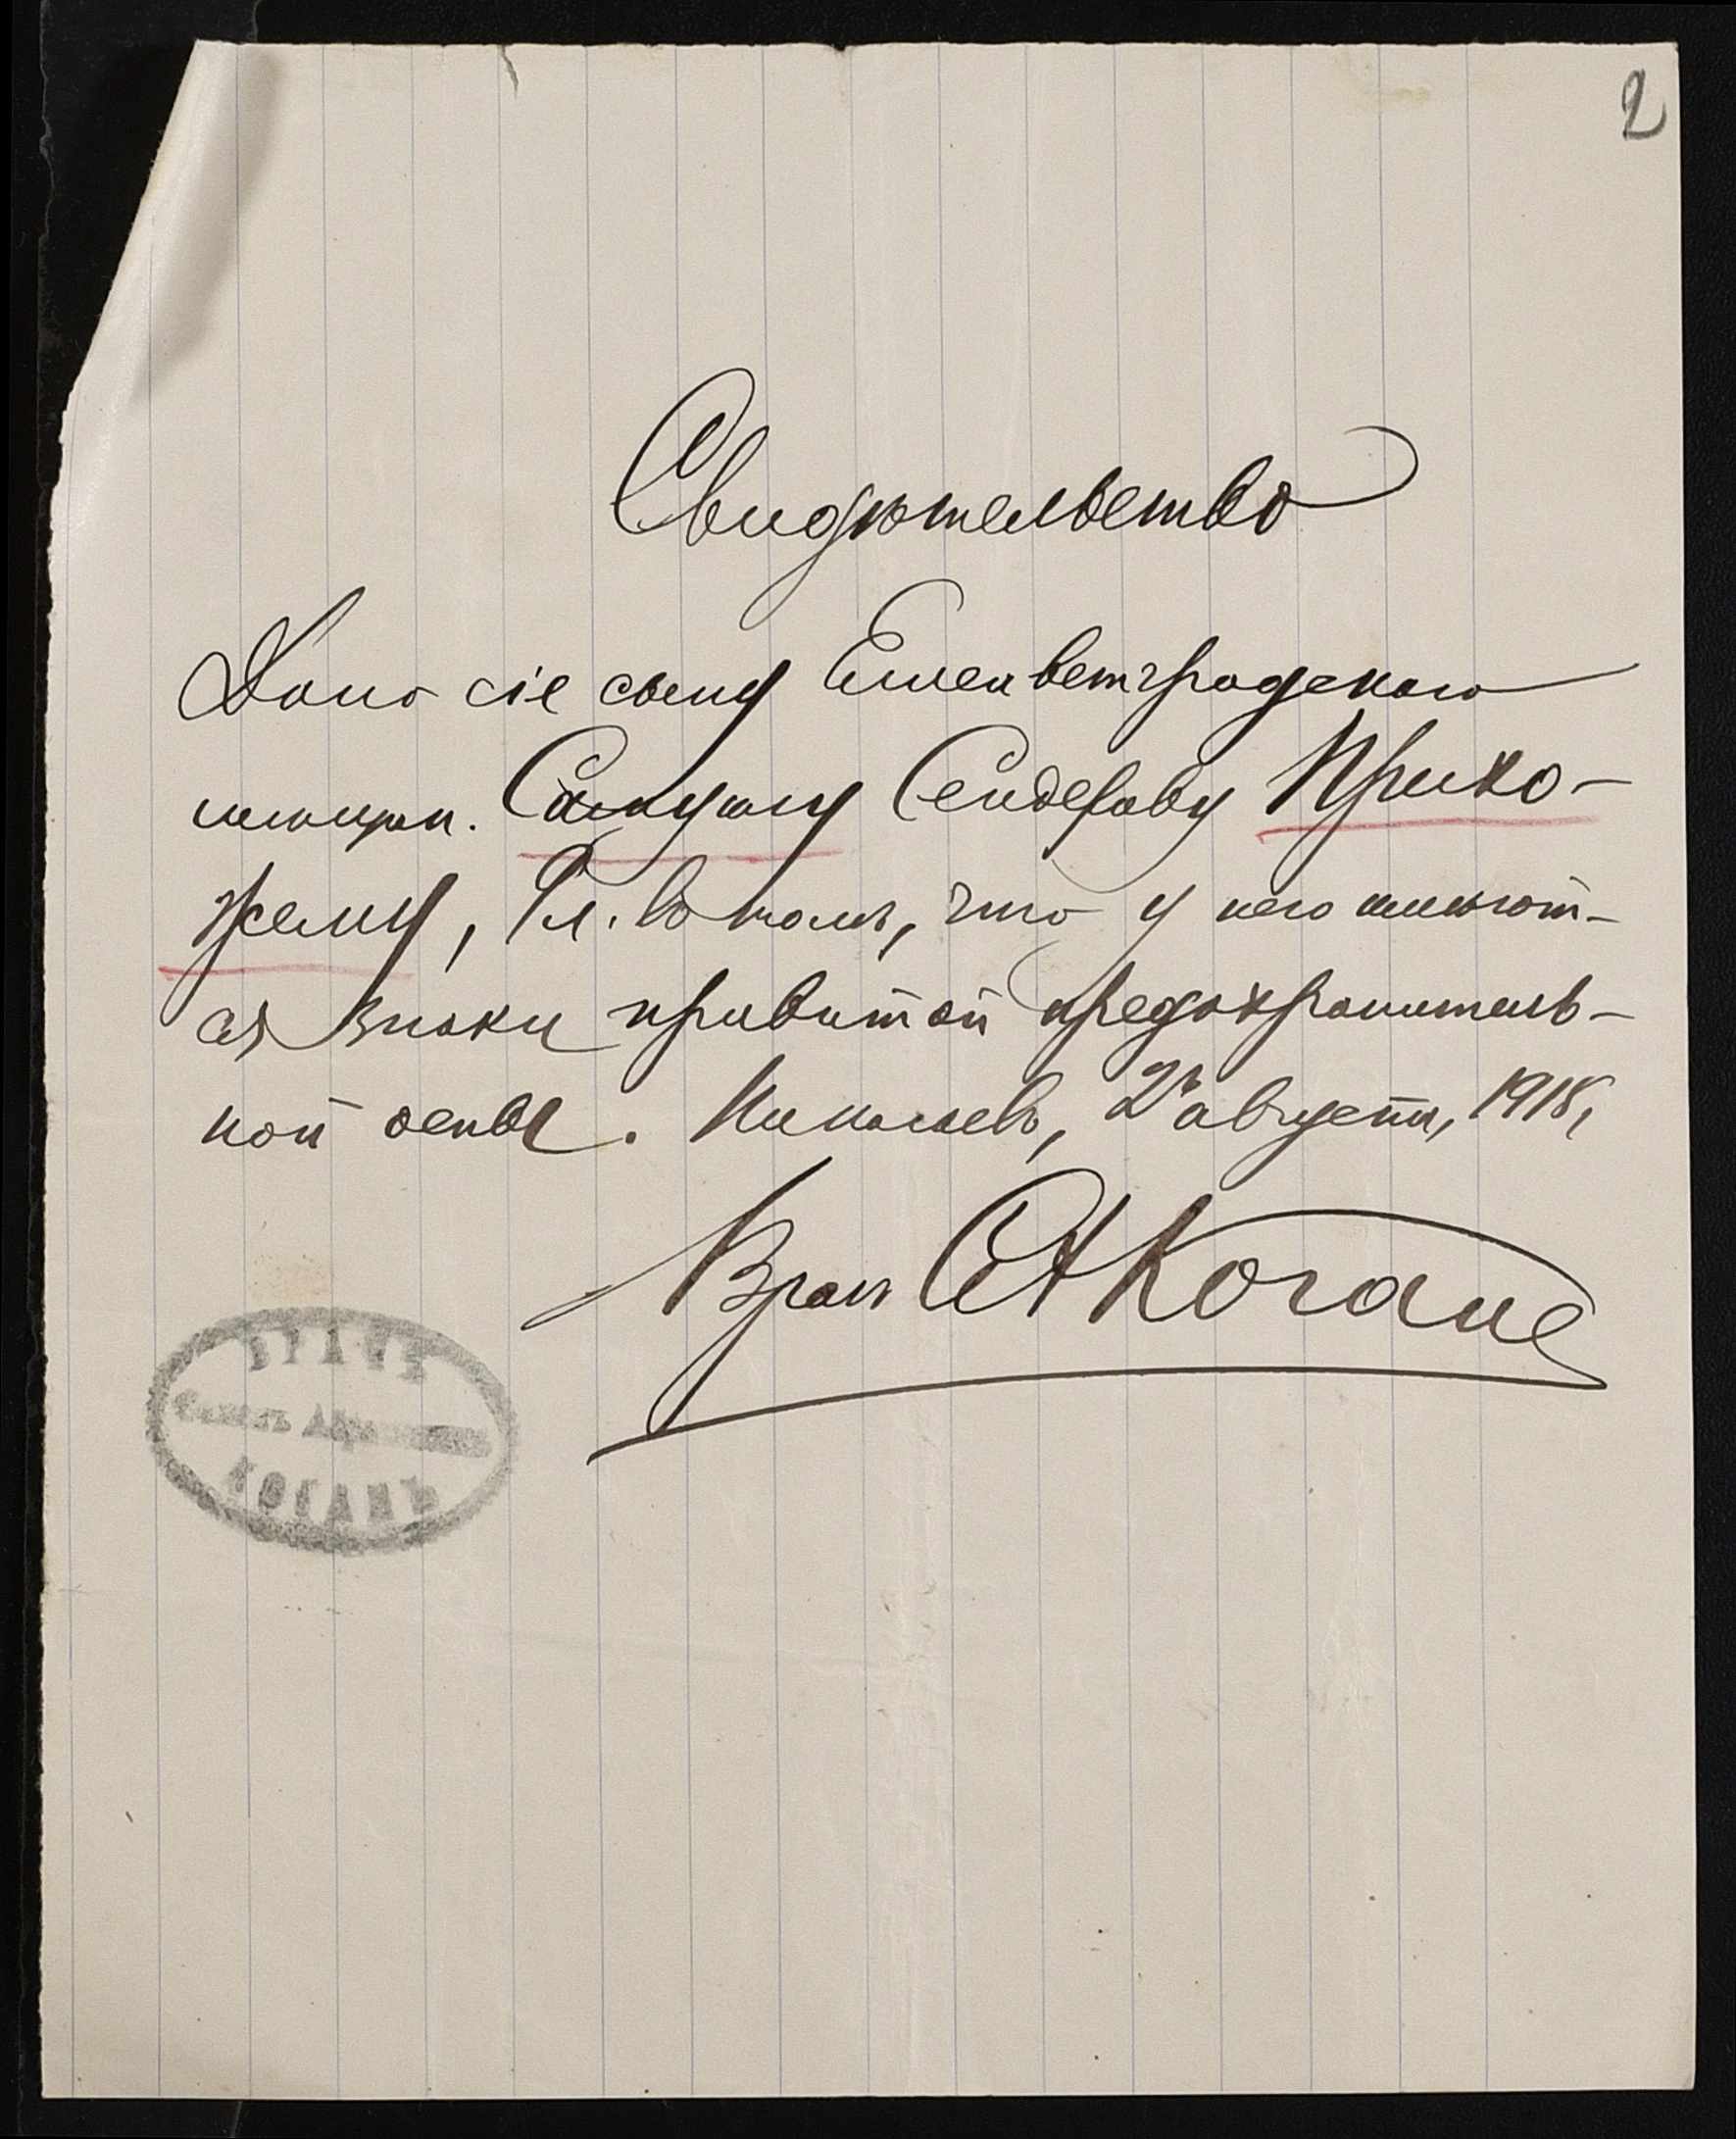 2
Свидѣтельство
Дано сіе сыну Елисаветградскаго
мѣщан. Самуилу Сендерову Прихо-
жему, въ томъ, что у него имѣют-
ся знаки привитой предохранитель-
ной оспы. Николаевъ, 2 августа, 1918,
Врачъ СА Коганъ
ВРАЧЪ
КОГАНЪ